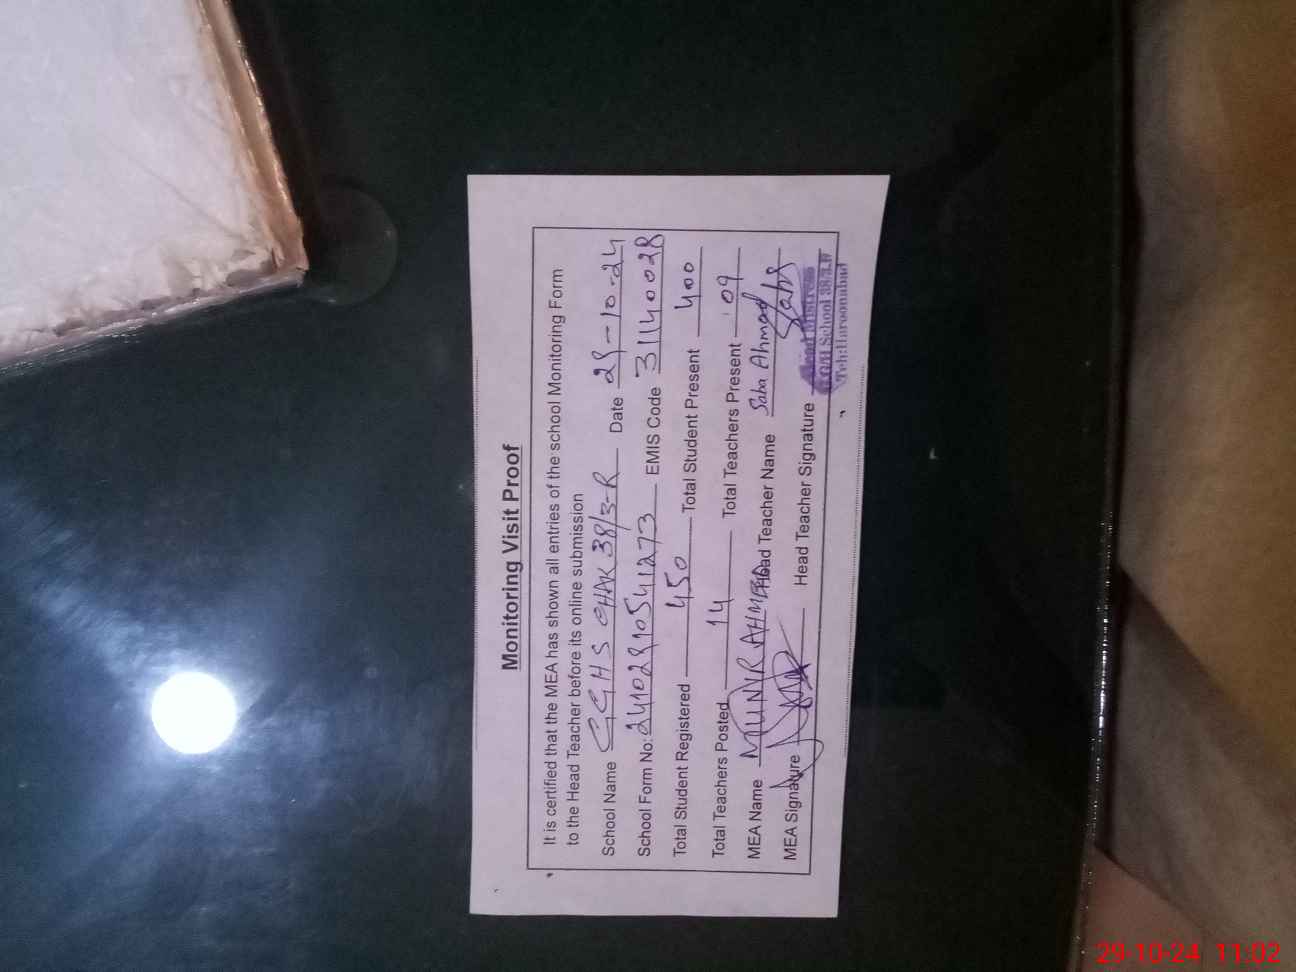 Monitoring Visit Proof
It is certified that the MEA has shown all entries of the school Monitoring Form
to the Head Teacher before its online submission
School Name GGHS CHAK 38/3-R Date 29-10-24
School Form No: 24102910541273 EMIS Code 31140028
Total Student Registered 450 Total Student Present 400
Total Teachers Posted 14 Total Teachers Present 09
MEA Name MUNIR AHMED Head Teacher Name Saba Ahmad
MEA Signature Head Teacher Signature Saba
Head Mistress
G.G/H School 38/3.R
Teh:Haroonabad
29-10-24 11:02